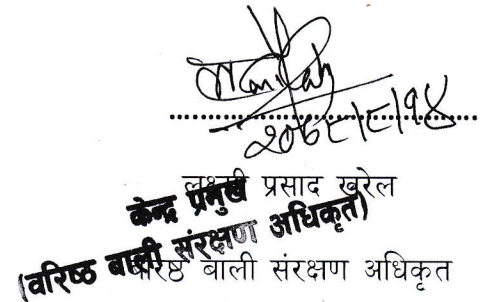 २०६८।८।१४
लक्ष्मी प्रसाद खरेल
केन्द्र प्रमुख
(वरिष्ठ बाली संरक्षण अधिकृत)
वरिष्ठ बाली संरक्षण अधिकृत